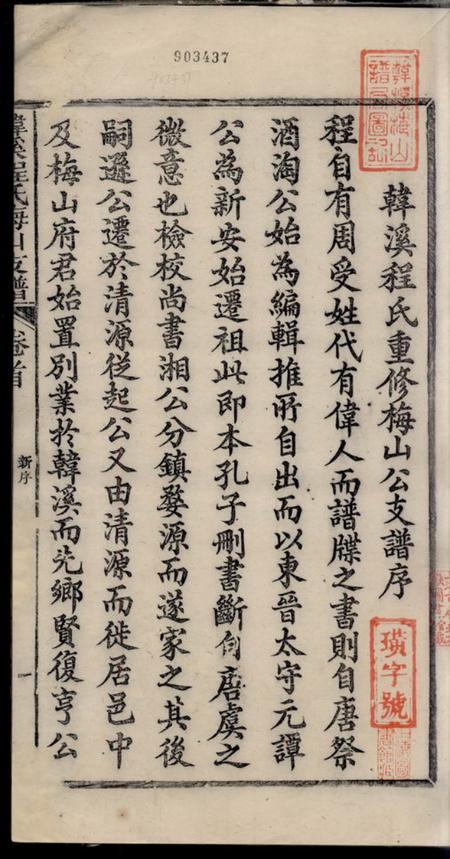 903437
韓溪梅山
譜局圖記
韓溪程氏重修梅山公支譜序
璜字號
程自有周受姓代有偉人而譜牒之書則自唐祭
酒淘公始為編輯推所自出而以東晉太守元譚
公為新安始遷祖此即本孔子刪書斷自唐虞之
微意也檢校尚書湘公分鎮婺源而遂家之其後
嗣遜公遷於清源從起公又由清源而徙居邑中
及梅山府君始置別業於韓溪而先鄉賢復亨公
韓溪程氏梅山支譜
卷首
新序
一